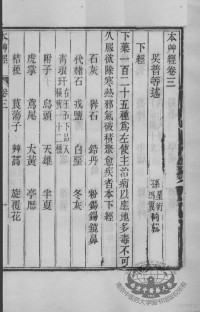 本艸經卷三
吳普等述
孫星衍
孫馮翼同輯
下經
下藥一百二十五種爲左使主治病以應地多毒不可
久服欲除寒熱邪氣破積聚愈疾者本下經
石灰 礜石 鉛丹 粉錫錫鏡鼻
代赭石 戎鹽 白堊 冬灰
青琅玕
附子 烏頭 天雄 半夏
虎掌 鳶尾 大黃 亭歷
桔梗 莨蕩子 草蒿 旋覆花
本艸經 卷三 一